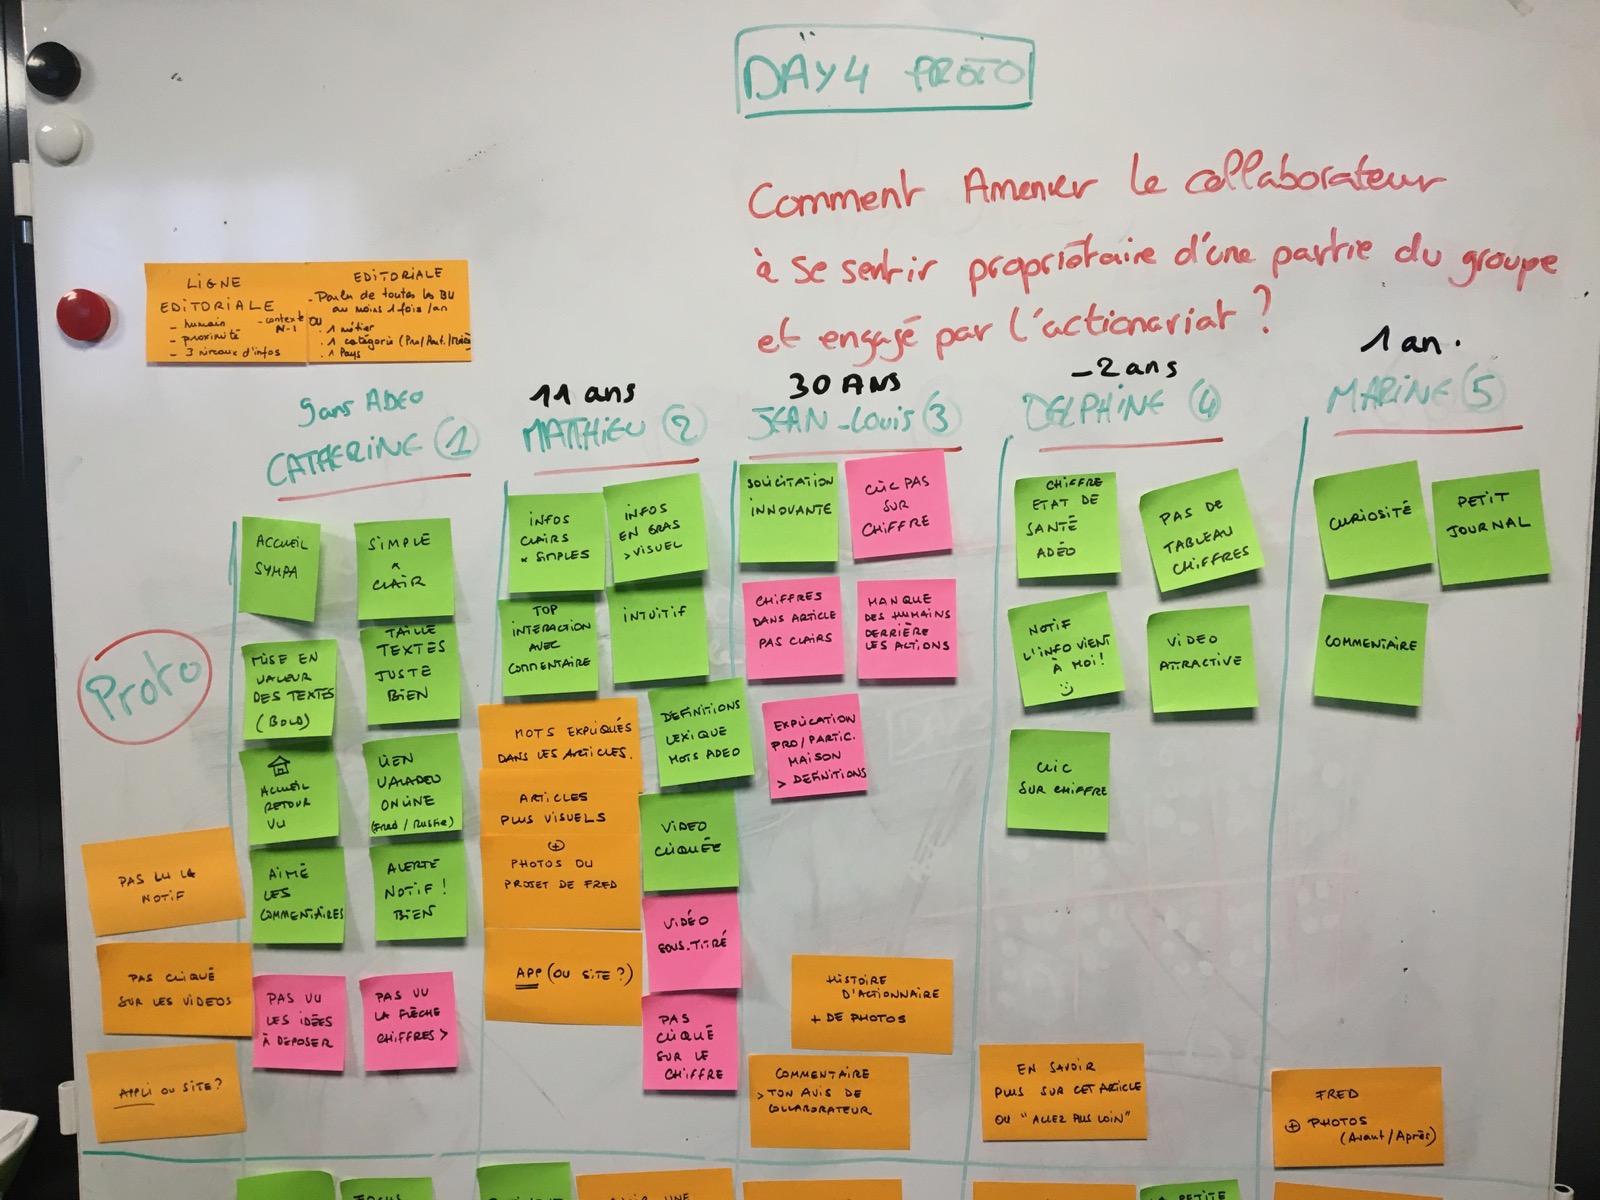 DAY4 PROTO
Comment Amener le collaborateur
à se sentir propriétaire d'une partie du groupe
et engagé par l'actionariat ?
LIGNE
EDITORIALE
- humain
- proximité
- 3 niveaux d'infos
- contexte
N-1
EDITORIALE
- Parler de toutes les BU
au moins 1 fois/an
OU
. 1 métier
. 1 catégorie (Pro/Part./
. 1 Pays
9ans ADEO
CATHERINE (1)
11 ans
MATTHIEU (2)
30 ANS
JEAN-Louis (3)
-2 ans
DELPHINE (4)
1 an.
MARINE (5)
Proto
ACCUEIL
SYMPA
SIMPLE
x
CLAIR
MISE EN
VALEUR
DES TEXTES
(BOLD)
TAILLE
TEXTES
JUSTE
BIEN
ACCUEIL
RETOUR
VU
LIEN
VALADEO
ONLINE
(Fred / Rustie)
AIMÉ
LES
COMMENTAIRES
ALERTE
NOTIF !
BIEN
PAS VU
LES IDÉES
À DEPOSER
PAS VU
LA FLÈCHE
CHIFFRES >
PAS LU LA
NOTIF
PAS CLIQUÉ
SUR LES VIDEOS
APPLI OU SITE ?
INFOS
CLAIRS
x SIMPLES
INFOS
EN GRAS
> VISUEL
TOP
INTERACTION
AVEC
COMMENTAIRE
INTUITIF
MOTS EXPLIQUÉS
DANS LES ARTICLES.
DEFINITIONS
LEXIQUE
MOTS ADEO
ARTICLES
PLUS VISUELS
⊕
PHOTOS DU
PROJET DE FRED
VIDEO
CLIQUÉE
APP (OU SITE ?)
VIDÉO
SOUS-TITRÉ
PAS
CLIQUÉ
SUR LE
CHIFFRE
SOLICITATION
INNOVANTE
CLIC PAS
SUR
CHIFFRE
CHIFFRES
DANS ARTICLE
PAS CLAIRS
MANQUE
DES HUMAINS
DERRIÈRE
LES ACTIONS
EXPLICATION
PRO/PARTIC.
MAISON
> DEFINITIONS
HISTOIRE
D'ACTIONNAIRE
+ DE PHOTOS
COMMENTAIRE
> TON AVIS DE
COLLABORATEUR
CHIFFRE
ETAT DE
SANTÉ
ADÉO
PAS DE
TABLEAU
CHIFFRES
NOTIF
L'INFO VIENT
À MOI !
VIDEO
ATTRACTIVE
CLIC
SUR CHIFFRE
EN SAVOIR
PLUS SUR CET ARTICLE
OU "ALLEZ PLUS LOIN"
CURIOSITÉ
PETIT
JOURNAL
COMMENTAIRE
FRED
⊕ PHOTOS
(Avant/Après)
FOCUS
UNE
PETITE